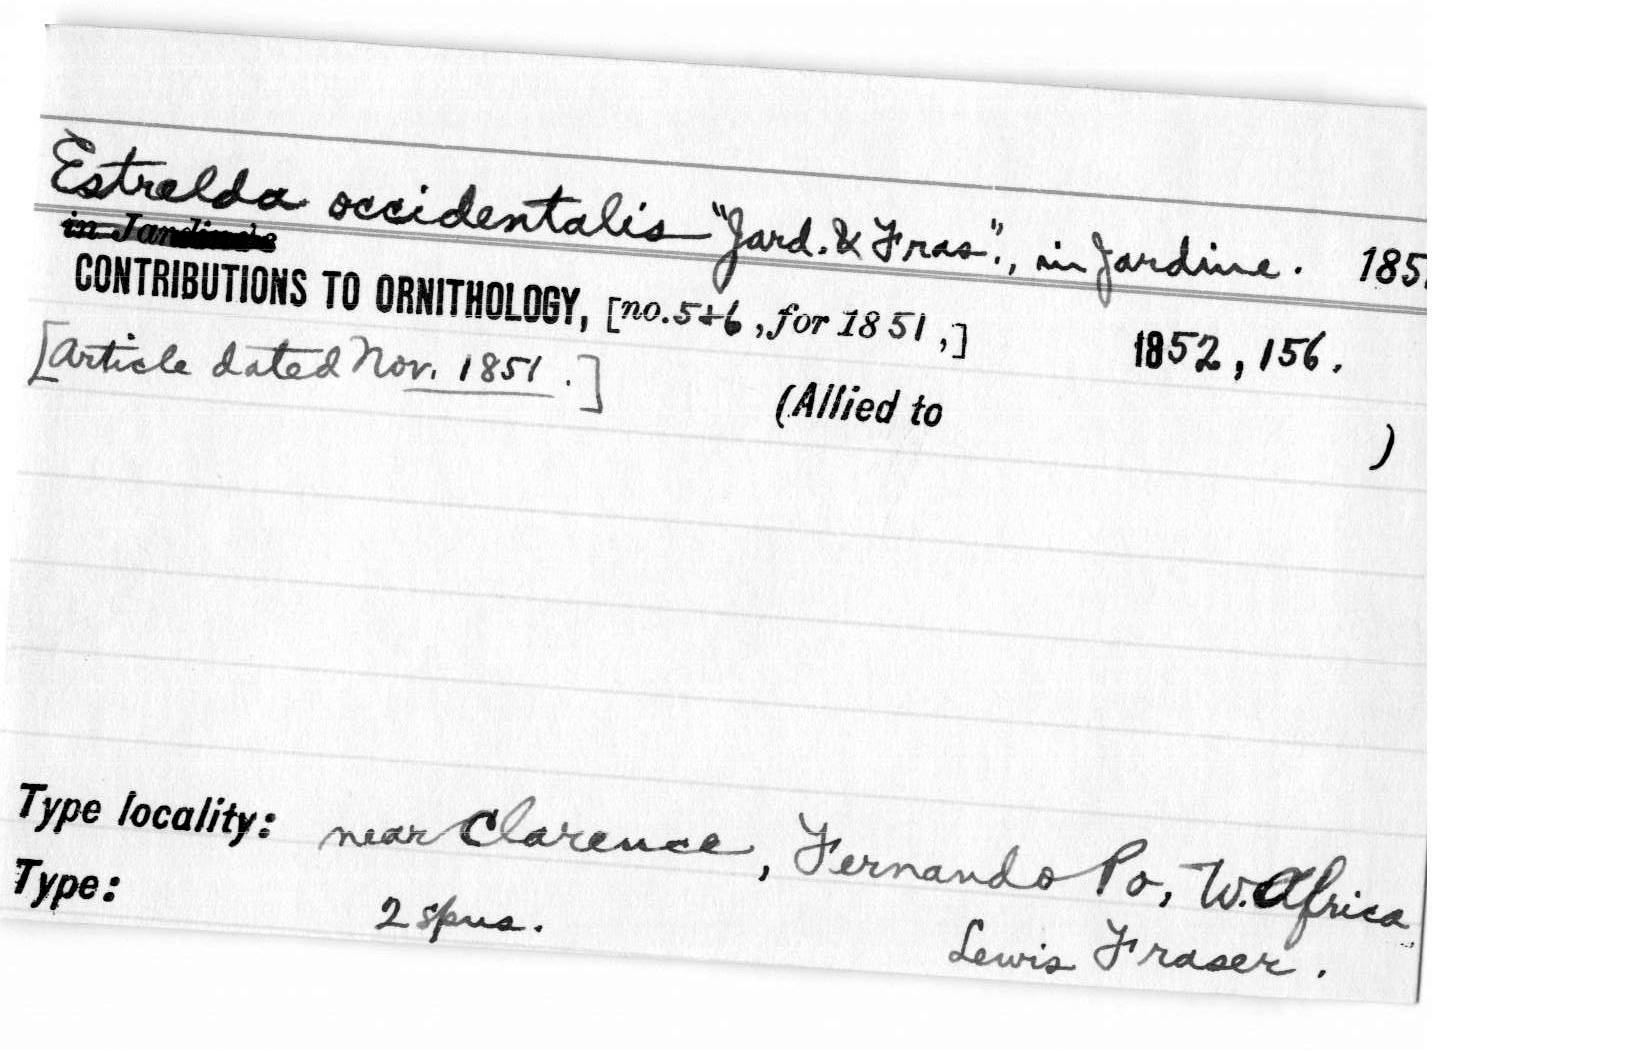 Estrelda occidentalis "Jard. & Fras"., in Jardine. 185
in Jardine's
CONTRIBUTIONS TO ORNITHOLOGY, [no. 5+6, for 1851,] 1852, 156.
[Article dated Nov. 1851.]
(Allied to )
Type locality: near Clarence, Fernando Po, W. Africa
Type: 2 spns. Lewis Fraser.